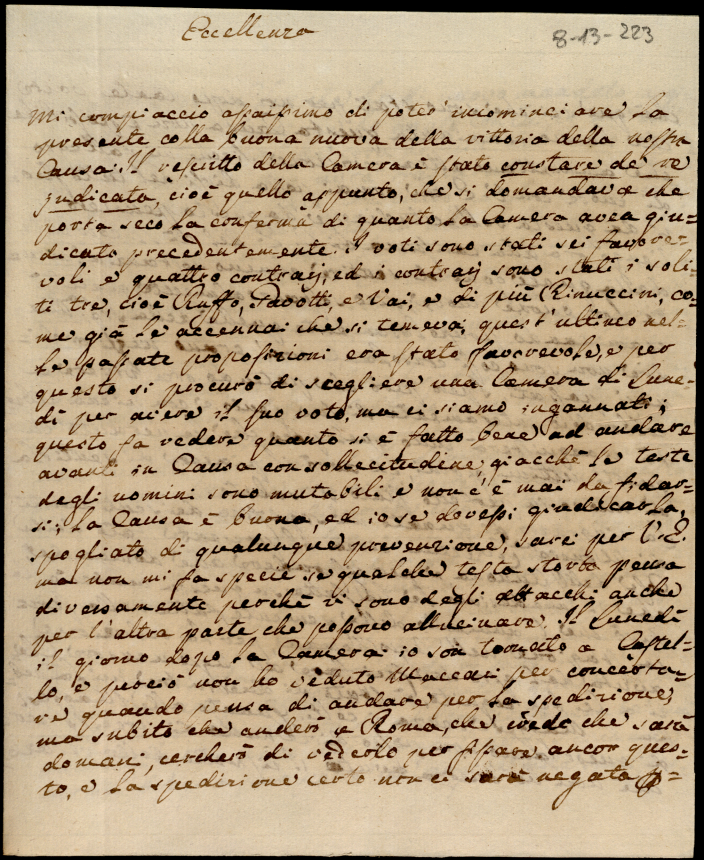 Eccellenza
8-13-223
Mi compiaccio assaissimo di poter incominciare la
presente colla buona nuova della vittoria della nostra
Causa. Il rescritto della Camera è stato constare de re
judicata, cioè quello appunto, che si domandava e che
porta seco la conferma di quanto la Camera avea giu=
dicato precedentemente. i voti sono stati sei favore=
voli e quattro contrarj, ed i contrarj sono stati i soli=
ti tre, cioè Ruffo, Pavotti, e Vai, e di più Rinuccini, co=
me già le accennai che si temeva; quest'ultimo nel=
le passate proposizioni era stato favorevole, e per
questo si procurò di scegliere una Camera di Lune=
dì per avere il suo voto, ma ci siamo ingannati;
questo fa vedere quanto si è fatto bene ad andare
avanti in Causa con sollecitudine, giacché le teste
degli uomini sono mutabili e non c'è mai da fidar=
si; la Causa è buona, ed io se dovessi giudicarla,
spogliato di qualunque prevenzione, sarei per V. E.
ma non mi fa specie se qualche testa storta pensa
diversamente perchè vi sono degli attacchi anche
per l'altra parte che possono allucinare. Il Lunedì
il giorno dopo la Camera io son tornato a Castel=
lo, e perciò non ho veduto Maccari per concerta=
re quando pensa di andare per la spedizione,
ma subito che anderò a Roma, che credo che sarà
domani, cercherò di vederlo per fissare ancor ques=
to, e la spedizione certo non ci sarà negata